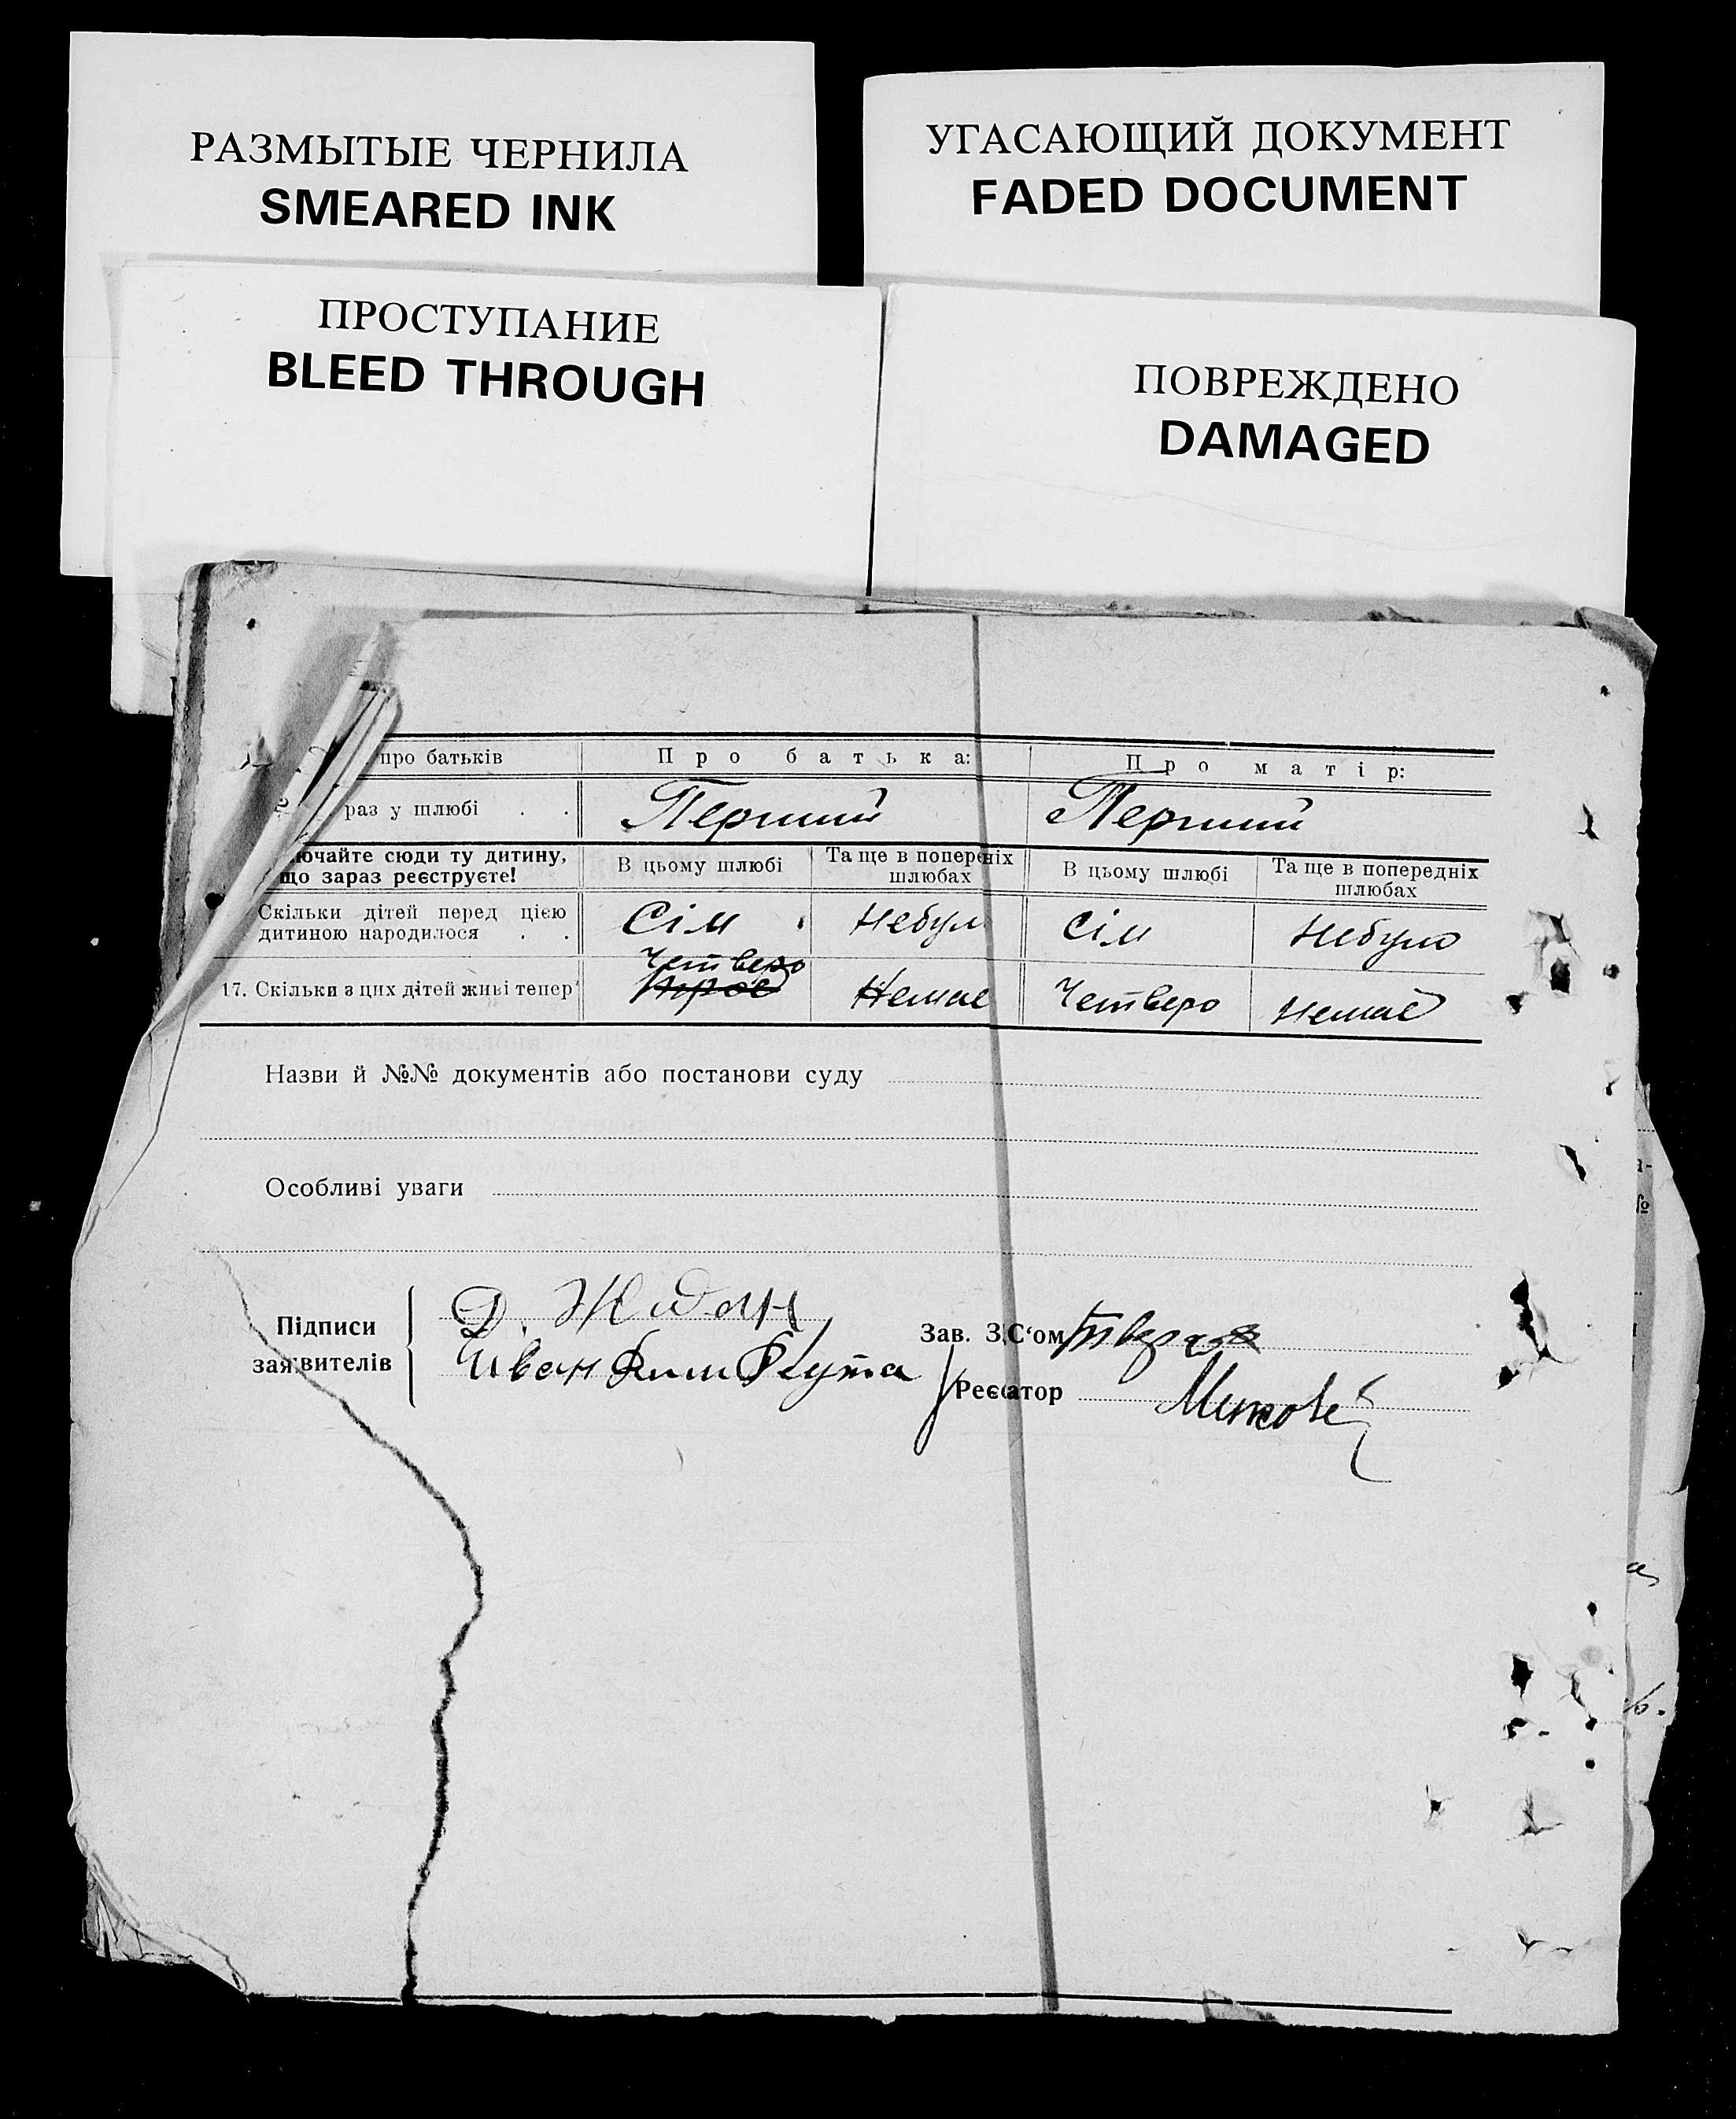 РАЗМЫТЫЕ ЧЕРНИЛА
SMEARED INK
УГАСАЮЩИЙ ДОКУМЕНТ
FADED DOCUMENT
ПРОСТУПАНИЕ
BLEED THROUGH
ПОВРЕЖДЕНО
DAMAGED
про батьків Про батька: Про матір:
раз у шлюбі . . Перший Перший
ючайте сюди ту дитину,
що зараз реєструєте!
В цьому шлюбі Та ще в попередніх шлюбах В цьому шлюбі Та ще в попередніх шлюбах
Скільки дітей перед цією
дитиною народилося . . Сім Небуло Сім Небуло
Четверо
17. Скільки з цих дітей живі тепер троє Немає Четверо Немає
Назви й №№ документів або постанови суду
Особливі уваги
Підписи
заявителів
Д. Жидан
Иван
Зав. ЗАС'ом
Реєстратор